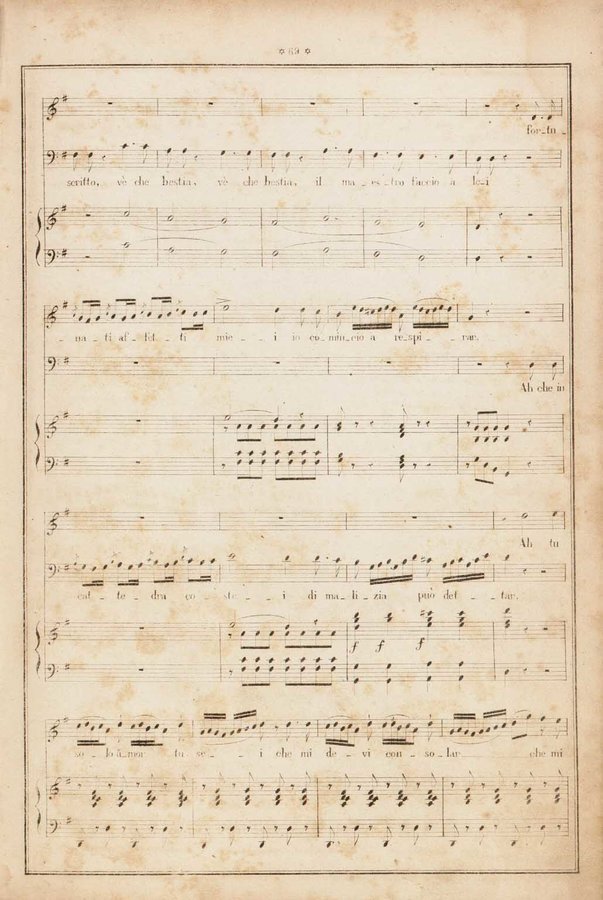 ✡ 69 ✡
for_tu_
scritto, vè che bestia, vè che bestia, il ma_es_tro faccio a le_i
_na_ti af_fet_ti mie__i io co_min_cio a re_spi_rar.
Ah che in
Ah tu
cat_te_dra co_ste__i di ma_li_zia può det__tar.
so_lo a_mor tu se__i che mi de_vi con_so_lar che mi
f f f